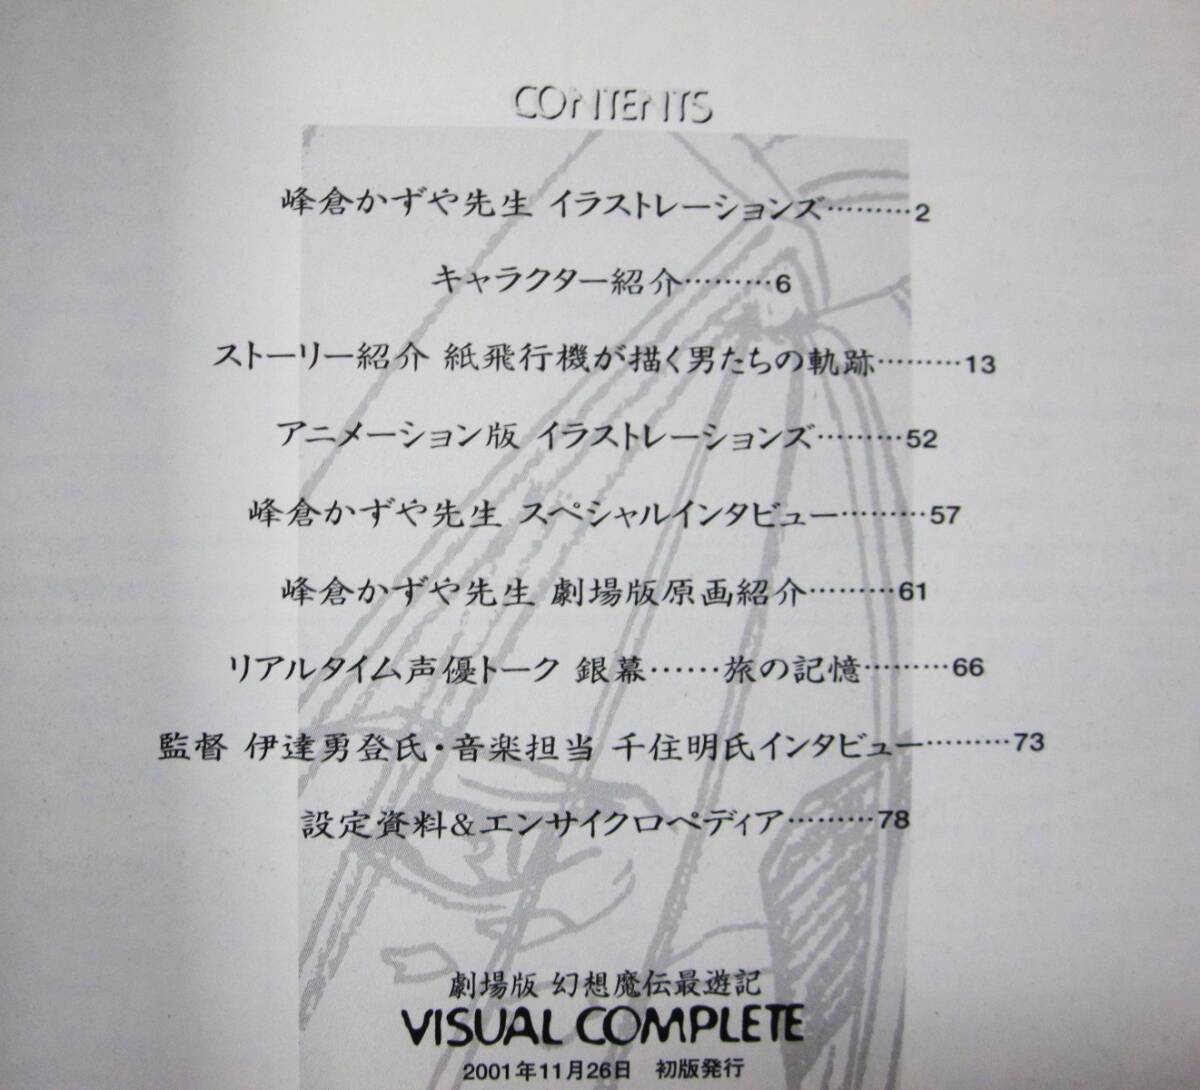 CONTENTS
峰倉かずや先生 イラストレーションズ………2
キャラクター紹介………6
ストーリー紹介 紙飛行機が描く男たちの軌跡………13
アニメーション版 イラストレーションズ………52
峰倉かずや先生 スペシャルインタビュー………57
峰倉かずや先生 劇場版原画紹介………61
リアルタイム声優トーク 銀幕……旅の記憶………66
監督 伊達勇登氏・音楽担当 千住明氏インタビュー………73
設定資料&エンサイクロペディア………78
劇場版 幻想魔伝最遊記
VISUAL COMPLETE
2001年11月26日 初版発行